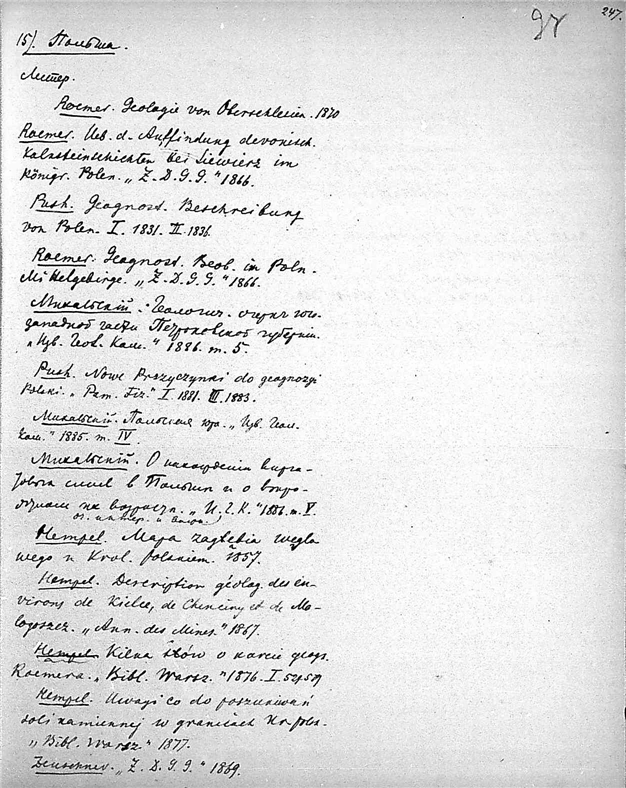 247.
97
15). Польша.
Литер.
Roemer. Geologie von Oberschlesien. 1870
Roemer. Ueb. d. Auffindung devonisch.
Kalksteinschichten bei Siewierz im
Königr. Polen. „Z. D. G. G.“ 1866.
Push. Geognost. Beschreibung
von Polen. I. 1831. II. 1836.
Roemer. Geagnost. Beob. im Poln.
Mittelgebirge. „Z. D. G. G.“ 1866.
Михальский. Геологич. очерк юго-
западной части Петроковской губернии.
„Изв. Геол. Ком.“ 1886. т. 5.
Push. Nowe Przyczynki do geognozyi
Polski. „Pam. Fiz.“ I. 1881. III. 1883.
Михальский. Польская юра. „Изв. Геол.
Ком.“ 1885. т. IV.
Михальский. О нахождении вирга-
товых слоев в Польше и о
возрасте. „И. Г. К.“ 1886. т. V.
Hempel. Mapa zagłębia węglo
wego w Król. Polskiem. 1857.
Hempel. Description géolog. des en-
virons de Kielce, de Chenciny et de Ma-
logoszcz. „Ann. des Mines.“ 1867.
Hempel. Kilka słów o karcie geogn.
Roemera. „Bibl. Warsz.“ 1876. I.
Hempel. Uwagi co do poszukiwań
soli kamiennej w granicach Kr. Pols.
„Bibl. Warsz.“ 1877.
Zeuschner. „Z. D. G. G.“ 1869.